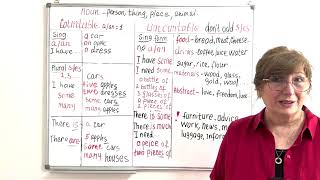 noun - person, thing, place, animal.
Countable a/an = 1
Uncountable don't add s/es
Sing.
a/an
I have
a car
an apple
a dress
Sing form
no a/an
I have some
I need some
a bottle of
2 bottles of
a glass of
2 glasses of
a piece of
2 pieces of
There is some
There is much
I need
a piece of
two pieces of
Plural s/es
2, 3
I have
some
many
cars
five apples
two dresses
some cars
many apples
There is
There are
a car
5 apples
some cars
many houses
food - bread, meat, cheese
drinks - coffee, juice, water
sugar, rice, flour
materials - wood, glass,
gold, wool
abstract - love, freedom, luck
! furniture, advice
work, news, m
luggage, infor